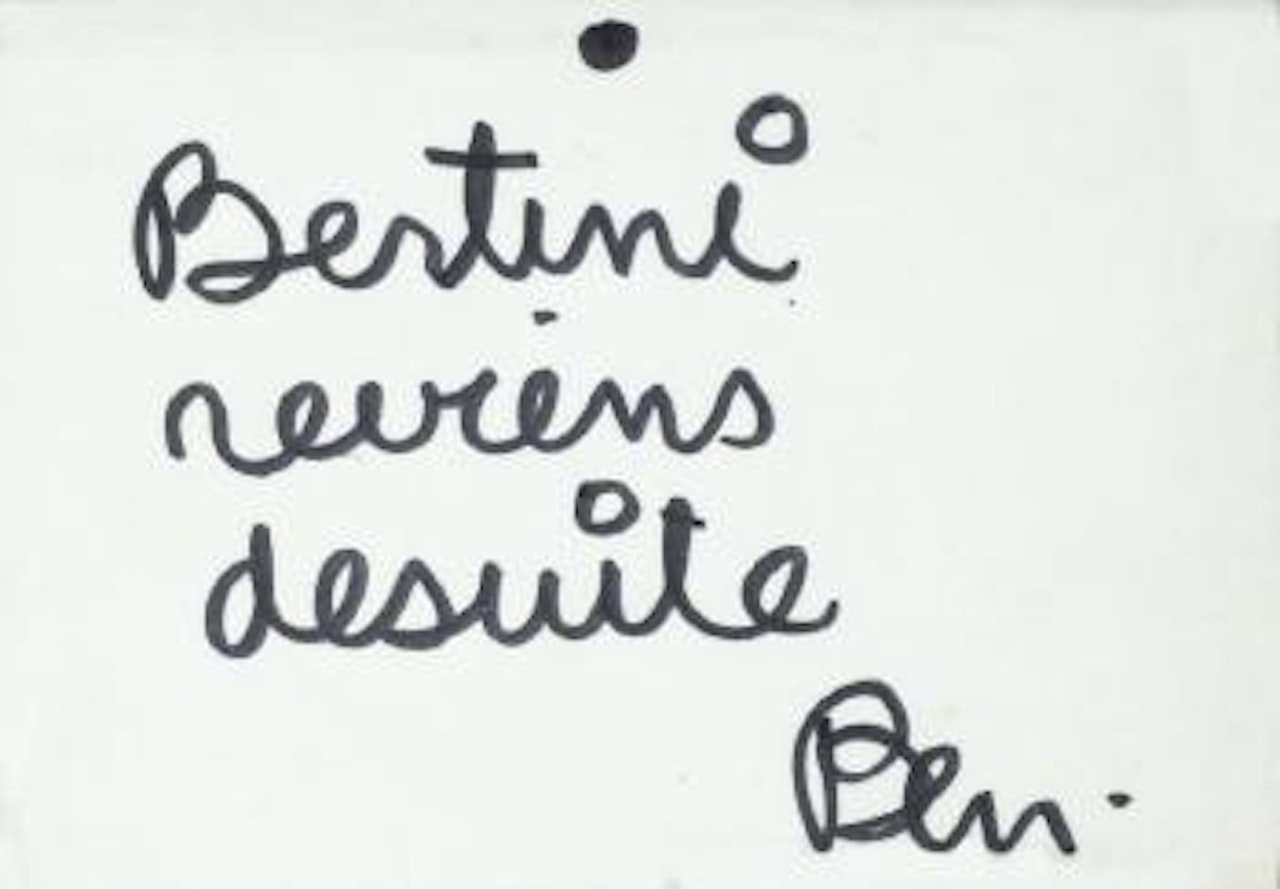 Bertini
reviens
desuite
Ben.